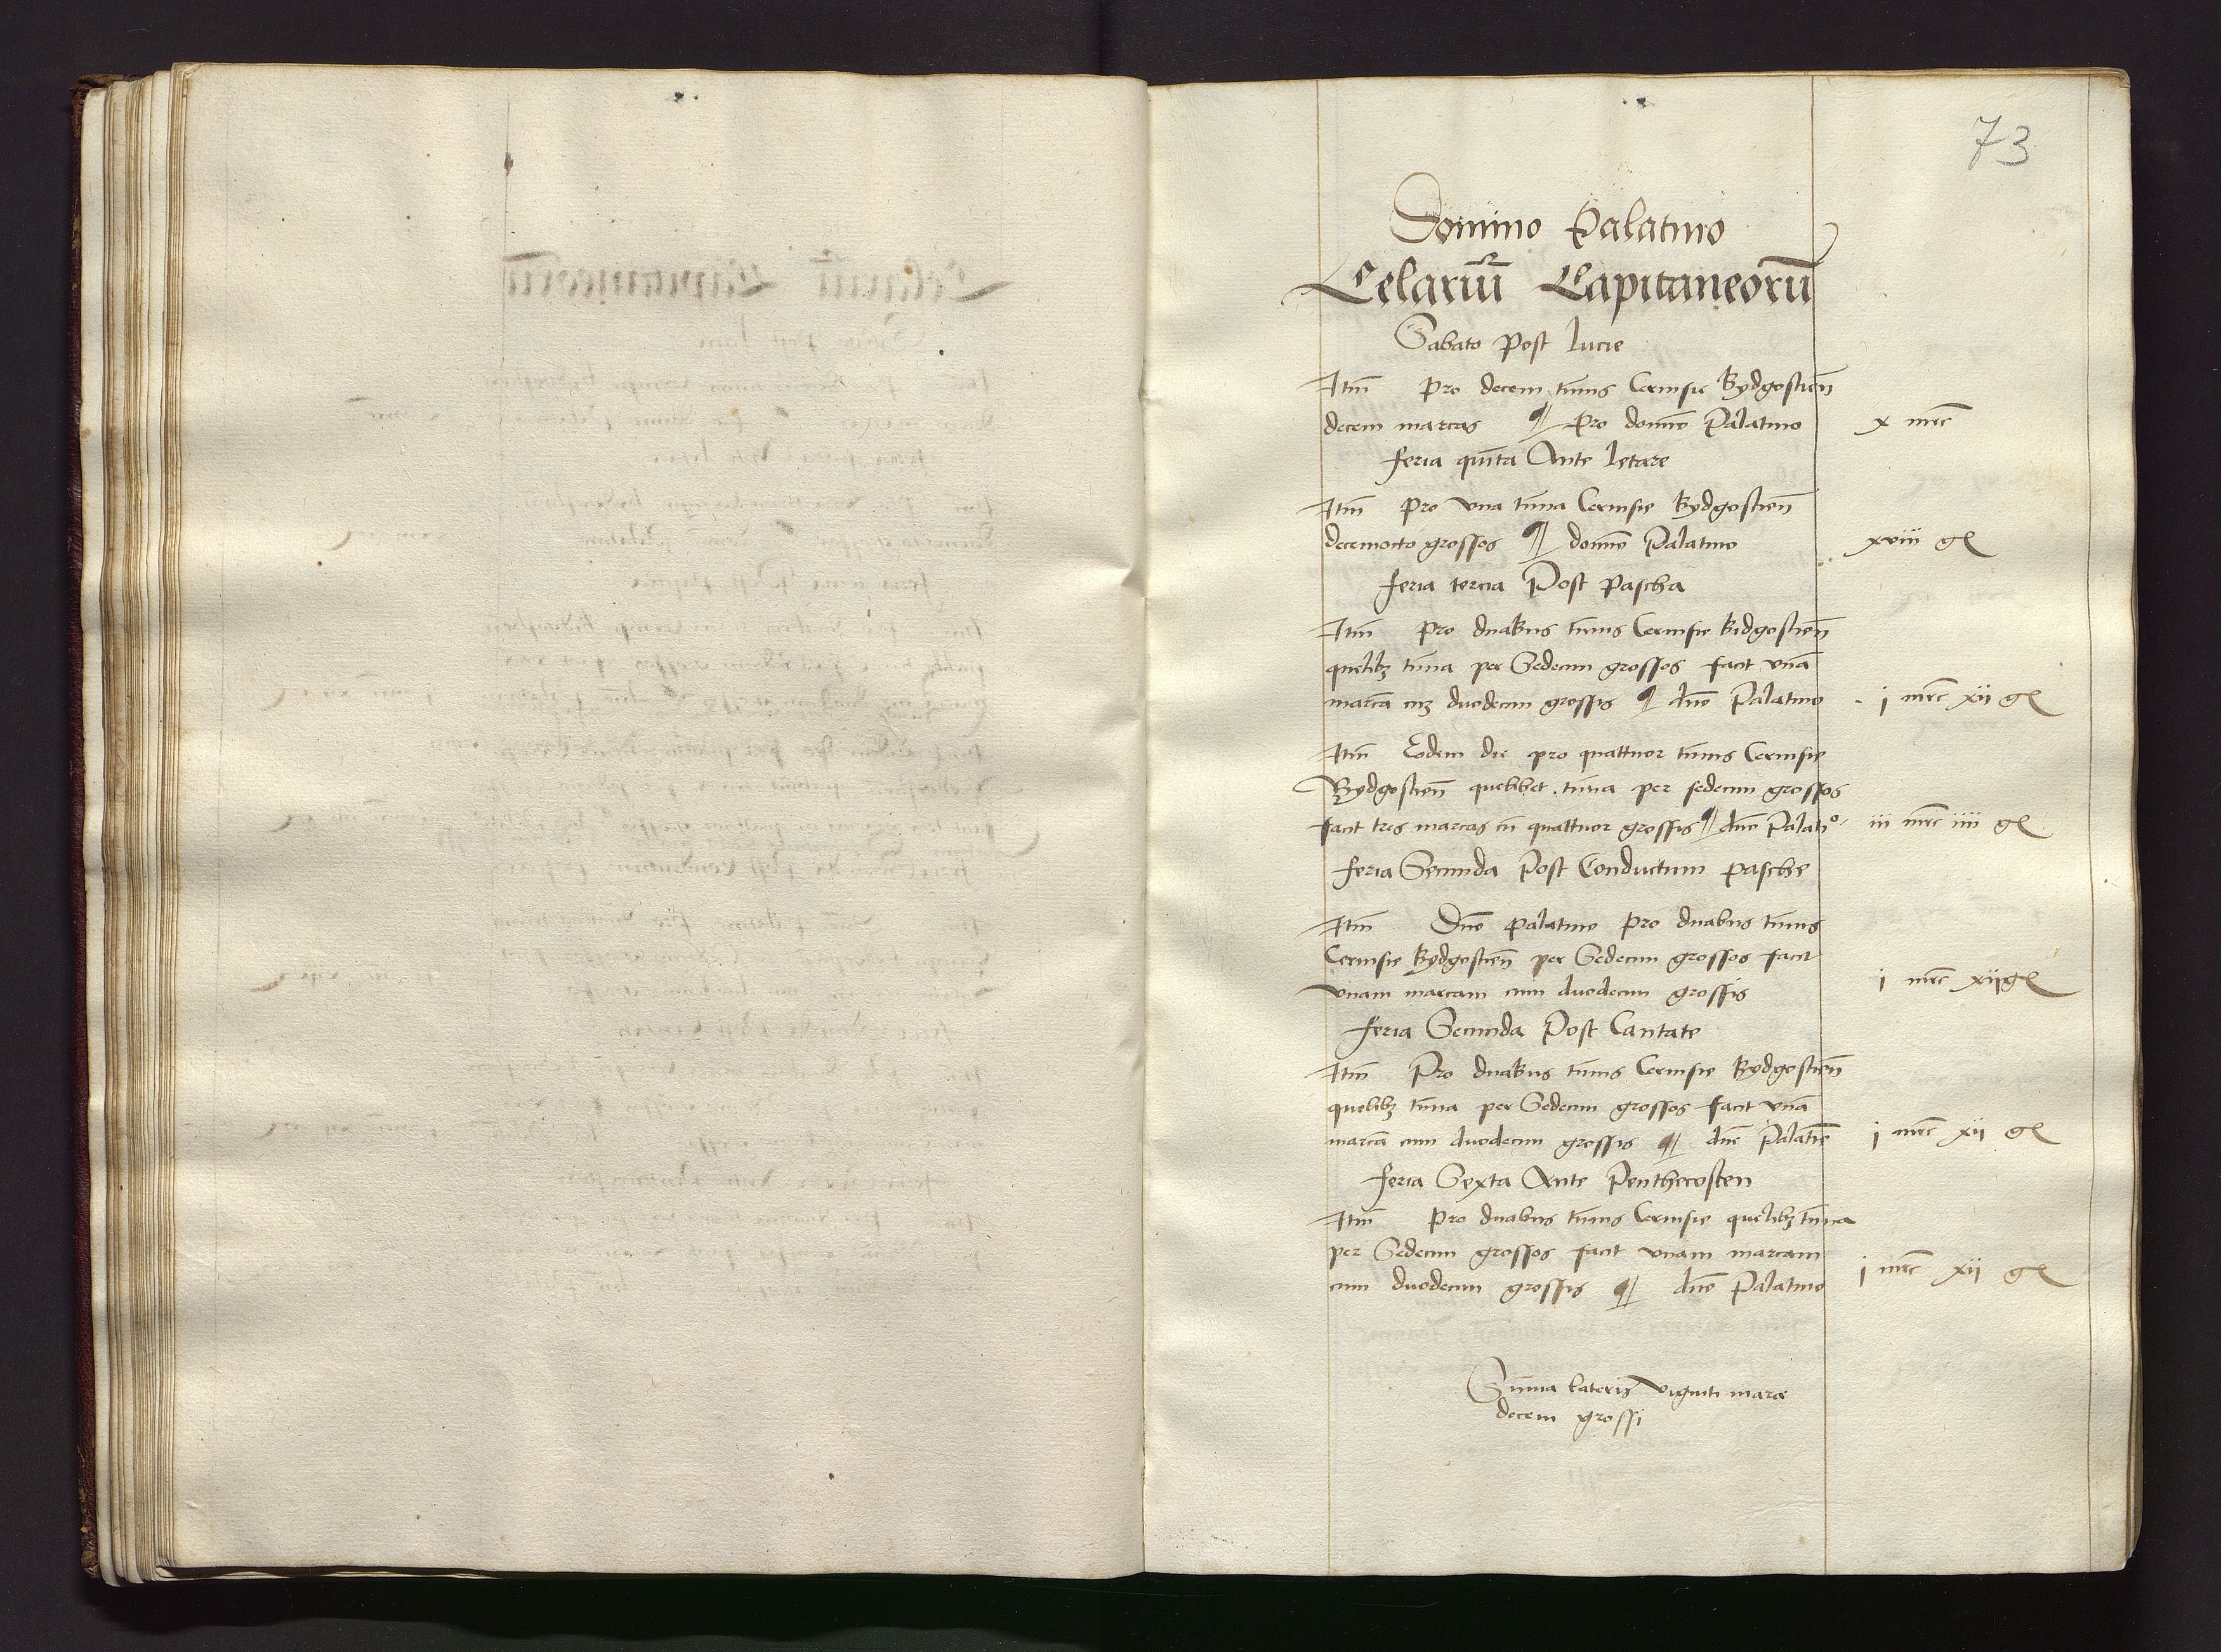 73
Domino Palatino
Celariũ Capitaneorũ
Sabato Post Lucie
Itm̃ Pro decem tunis Cervisie Bydgostien̄
decem marcas ¶ Pro domino Palatino x mrc̃
feria quinta Ante Letare
Itm̃ Pro una tuna Cervisie Bydgostien̄
decemocto grossos ¶ domino Palatino xviii gͬ
feria tercia Post Pascha
Itm̃ Pro duabus tunis Cervisie Bidgostien̄
quelibꝫ tuna per Sedecim grossos facit unã
marcã cuꝫ duodecim grossis ¶ dno̅ Palatino i mrc̃ xii gͬ
Itm̃ Eodem die pro quattuor tunis Cervisie
Bydgostien̄ quelibet tuna per sedecim grossos
facit tres marcas cũ quattuor grossis ¶ dno̅ Palatiº iii mrc̃ iiii gͬ
feria Secunda Post Conductum pasche
Itm̃ Dno̅ Palatino Pro duabus tunis
Cervisie Bydgostien̄ per Sedecim grossos facit
unam marcam cum duodecim grossis i mrc̃ xii gͬ
feria Secunda Post Cantate
Itm̃ Pro duabus tunis Cervisie Bydgostien̄
quelibꝫ tuna per Sedecim grossos facit unã
marcã cum duodecim grossis ¶ dno̅ i mrc̃ xii gͬ
feria Sexta Ante Penthecosten
Itm̃ Pro duabus tunis Cervisie quelibꝫ tuna
per Sedecim grossos facit unam marcam
cum duodecim grossis ¶ dno̅ Palatino i mrc̃ xii gͬ
Sum̃a lateris viginti marce
decem grossi